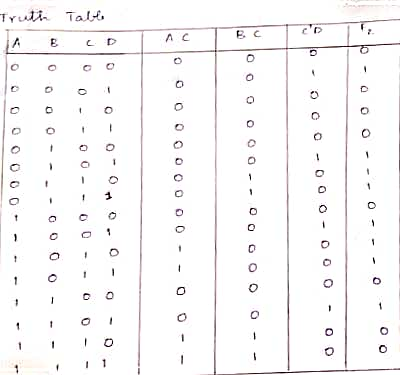 Truth Table
A B C D A C B C C'D F2
0 0 0 0 0 0 0 0
0 0 0 1 0 0 1 1
0 0 1 0 0 0 0 0
0 0 1 1 0 0 0 0
0 1 0 0 0 0 0 0
0 1 0 1 0 0 1 1
0 1 1 0 0 1 0 1
0 1 1 1 0 1 0 1
1 0 0 0 0 0 0 0
1 0 0 1 0 0 1 1
1 0 1 0 1 0 0 1
1 0 1 1 1 0 0 1
1 1 0 0 0 0 0 0
1 1 0 1 0 0 1 1
1 1 1 0 1 1 0 0
1 1 1 1 1 1 0 0